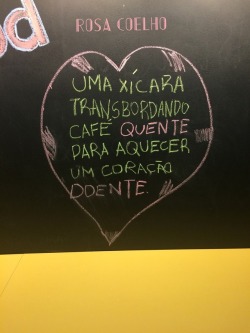 od
ROSA COELHO
UMA XÍCARA
TRANSBORDANDO
CAFÉ QUENTE
PARA AQUECER
UM CORAÇÃO
DOENTE.